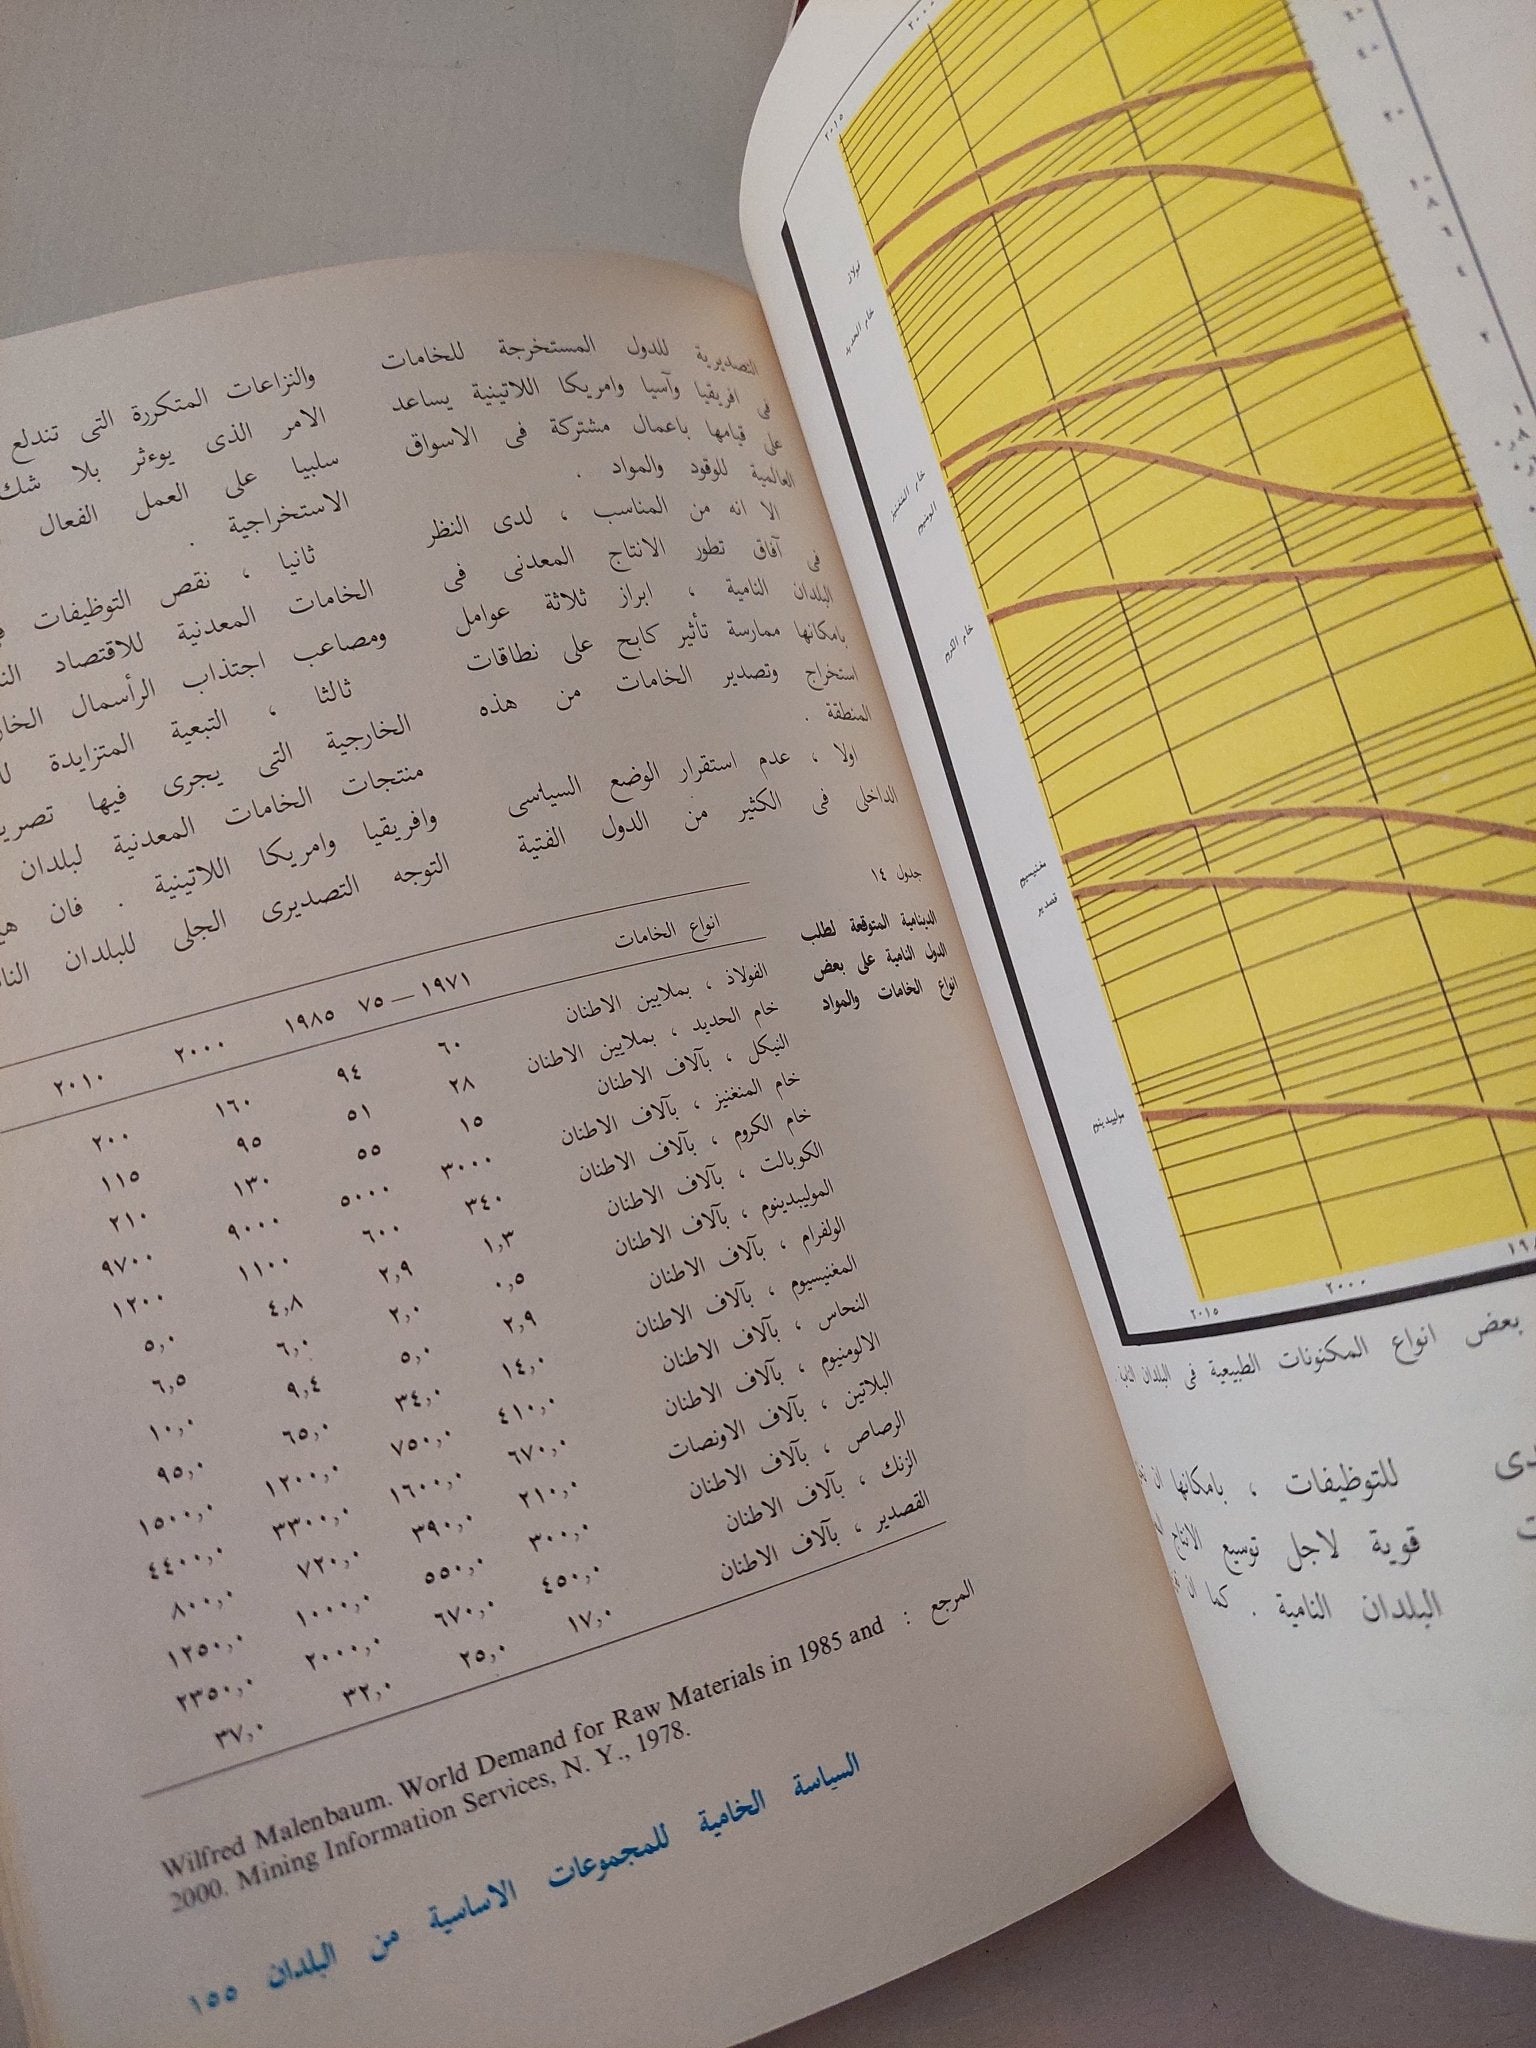 ٢٠٠٠
٢٠١٥
فولاذ
خام الحديد
خام المنغنيز
الومنيوم
خام الكروم
مغنيسيوم
قصدير
موليبدينوم
٢٠١٥ ٢٠٠٠
بعض انواع المكنونات الطبيعية فى البلدان
للتوظيفات ، بامكانها ان
قوية لاجل توسيع الانتاج
البلدان النامية . كما ان
التصديرية للدول المستخرجة للخامات
فى افريقيا وآسيا وامريكا اللاتينية يساعد
على قيامها باعمال مشتركة فى الاسواق
العالمية للوقود والمواد .
الا انه من المناسب ، لدى النظر
فى آفاق تطور الانتاج المعدنى فى
البلدان النامية ، ابراز ثلاثة عوامل
بامكانها ممارسة تأثير كابح على نطاقات
استخراج وتصدير الخامات من هذه
المنطقة .
اولا ، عدم استقرار الوضع السياسى
الداخلى فى الكثير من الدول الفتية
والنزاعات المتكررة التى تندلع
الامر الذى يوءثر بلا شك
سلبيا على العمل الفعال
الاستخراجية .
ثانيا ، نقص التوظيفات
الخامات المعدنية للاقتصاد
ومصاعب اجتذاب الرأسمال
ثالثا ، التبعية المتزايدة
الخارجية التى يجرى فيها
منتجات الخامات المعدنية لبلدان
وافريقيا وامريكا اللاتينية . فان
التوجه التصديرى الجلى للبلدان
جدول ١٤
الدينامية المتوقعة لطلب
الدول النامية على بعض
انواع الخامات والمواد
انواع الخامات ١٩٧١ — ٧٥ ١٩٨٥ ٢٠٠٠ ٢٠١٠
الفولاذ ، بملايين الاطنان ٦٠ ٩٤ ١٦٠ ٢٠٠
خام الحديد ، بملايين الاطنان ٢٨ ٥١ ٩٥ ١١٥
النيكل ، بآلاف الاطنان ١٥ ٥٥ ١٣٠ ٢١٠
خام المنغنيز ، بآلاف الاطنان ٣٠٠٠ ٥٠٠٠ ٩٠٠٠ ٩٧٠٠
خام الكروم ، بآلاف الاطنان ٣٤٠ ٦٠٠ ١١٠٠ ١٢٠٠
الكوبالت ، بآلاف الاطنان ١,٣ ٢,٩ ٤,٨ ٥,٠
الموليبدينوم ، بآلاف الاطنان ٠,٥ ٢,٠ ٦,٠ ٦,٥
الولفرام ، بآلاف الاطنان ٢,٩ ٥,٠ ٩,٤ ١٠,٠
المغنيسيوم ، بآلاف الاطنان ١٤,٠ ٣٤,٠ ٦٥,٠ ٩٥,٠
النحاس ، بآلاف الاطنان ٤١٠,٠ ٧٥٠,٠ ١٢٠٠,٠ ١٥٠٠,٠
الالومنيوم ، بآلاف الاطنان ٦٧٠,٠ ١٦٠٠,٠ ٣٣٠٠,٠ ٤٤٠٠,٠
البلاتين ، بآلاف الاونصات ٢١٠,٠ ٣٩٠,٠ ٧٢٠,٠ ٨٠٠,٠
الرصاص ، بآلاف الاطنان ٣٠٠,٠ ٥٥٠,٠ ١٠٠٠,٠ ١٢٥٠,٠
الزنك ، بآلاف الاطنان ٤٥٠,٠ ٦٧٠,٠ ٢٠٠٠,٠ ٢٣٥٠,٠
القصدير ، بآلاف الاطنان ١٧,٠ ٢٥,٠ ٣٢,٠ ٣٧,٠
المرجع :
Wilfred Malenbaum. World Demand for Raw Materials in 1985 and
2000. Mining Information Services, N. Y., 1978.
السياسة الخامية للمجموعات الاساسية من البلدان ١٥٥